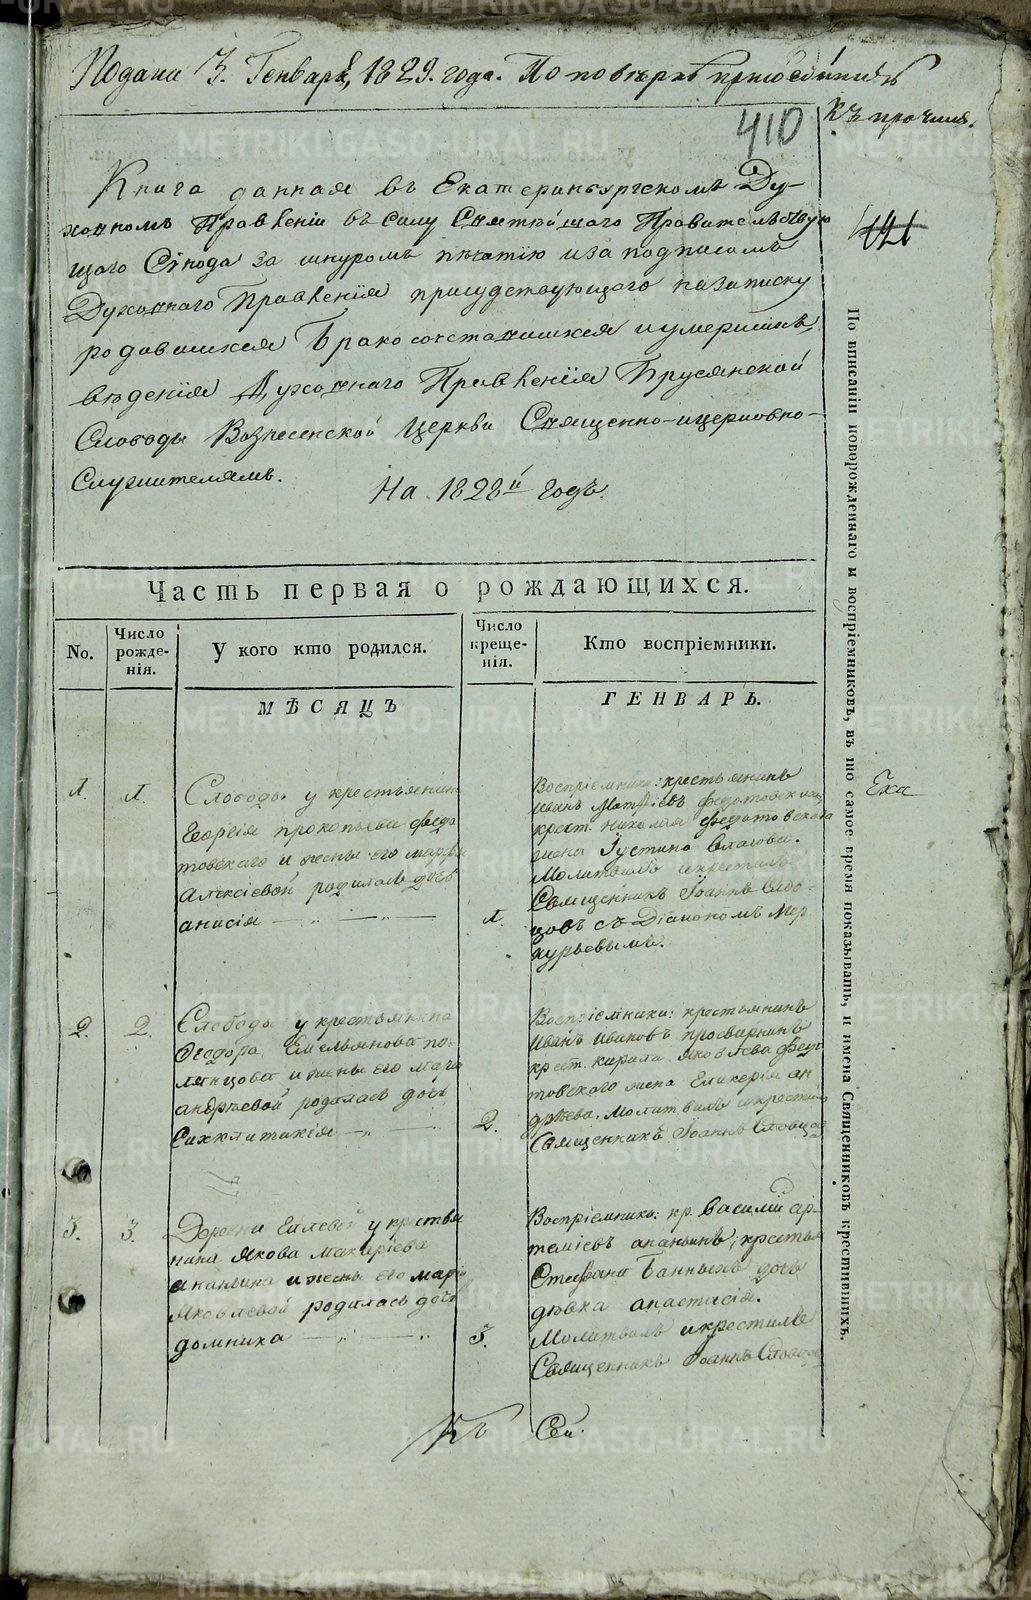 Подана 3. Генваря, 1829. года. По поверке приобщить
къ прочимъ.
410
121
Книга данная въ Екатеринбургскомъ Ду-
ховномъ Правленіи въ силу Святѣйшаго Правительствую
щаго Сѵнода за шнуромъ печатію и за подписомъ
Духовнаго Правленія присудствующаго на записку
родившихся Бракосочетавшихся и умершихъ,
вѣденія Духовнаго Правленія Брусянской
Слободы Вознесенской Церкви Священно-и церковно-
Служителямъ.
На 1828й Годъ.
Часть первая о рождающихся.
No.
Число рожде-нія.
У кого кто родился.
Число креще-нія.
Кто воспріемники.
МѢСЯЦЪ
ГЕНВАРЬ.
1. 1.
Слободы у крестьянина
Георгія прокопьева федо
товскаго и жены его марфы
Алексіевой родилась дочь
анисія
1.
Воспріемники: крестьянинъ
иванъ Матфіевъ федотовских
крест. Николая федотовскаго
жена Іустина Власова.
Молитвилъ икрестилъ
Священникъ Іоаннъ Слов-
цовъ съ Діакономъ Мер
курьевымъ.
2. 2.
Слободы у крестьянина
Феодора Емельянова по-
лянцова и жены его
андреевой родилась дочь
Синклитикія
2.
Воспріемники: крестьянинъ
Иванъ Ивановъ просвирнинъ
крест. кирила яковлева федо
товскаго жена Гликерія ан
дрѣева. Молитвилъ икрестилъ
Священникъ Іоаннъ Словцов
3. 3.
Деревни у крестья
нина Якова макаріева
ананьина и жены его марі
Яковлевой родилась дочь
домника
3.
Воспріемники: кр. Василій ар-
темієвъ ананьинъ; крестья
Стефана Банныхъ дочь
дѣвка анастасія.
Молитвилъ икрестилъ
Священникъ Іоаннъ Словцов
Къ Сей.
Ека
По вписаніи новорожденнаго и воспріемниковъ, въ то самое время показывать, и имена Священниковъ крестившихъ.
METRIKI.GASO-URAL.RU